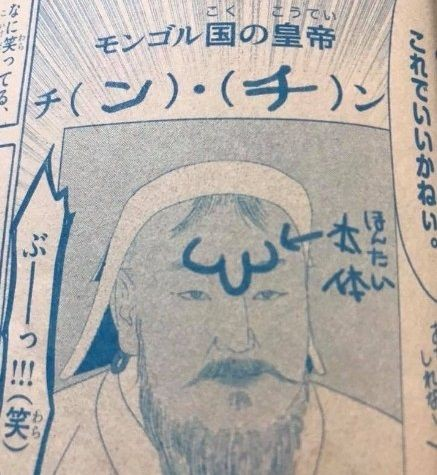 これでいいかねい。
モンゴル国の皇帝
こく
こうてい
チ(ン)・(チ)ン
本体
ほんたい
ぶーーっ!!!(笑)
わら
なに笑ってる、
わら